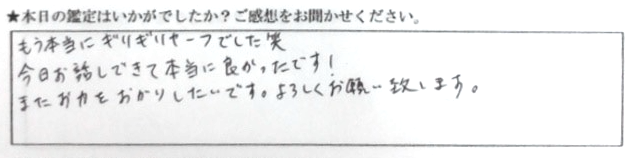 ★本日の鑑定はいかがでしたか？ご感想をお聞かせください。
もう本当にギリギリセーフでした笑
今日お話しできて本当に良かったです！
またお力をおかりしたいです。よろしくお願い致します。